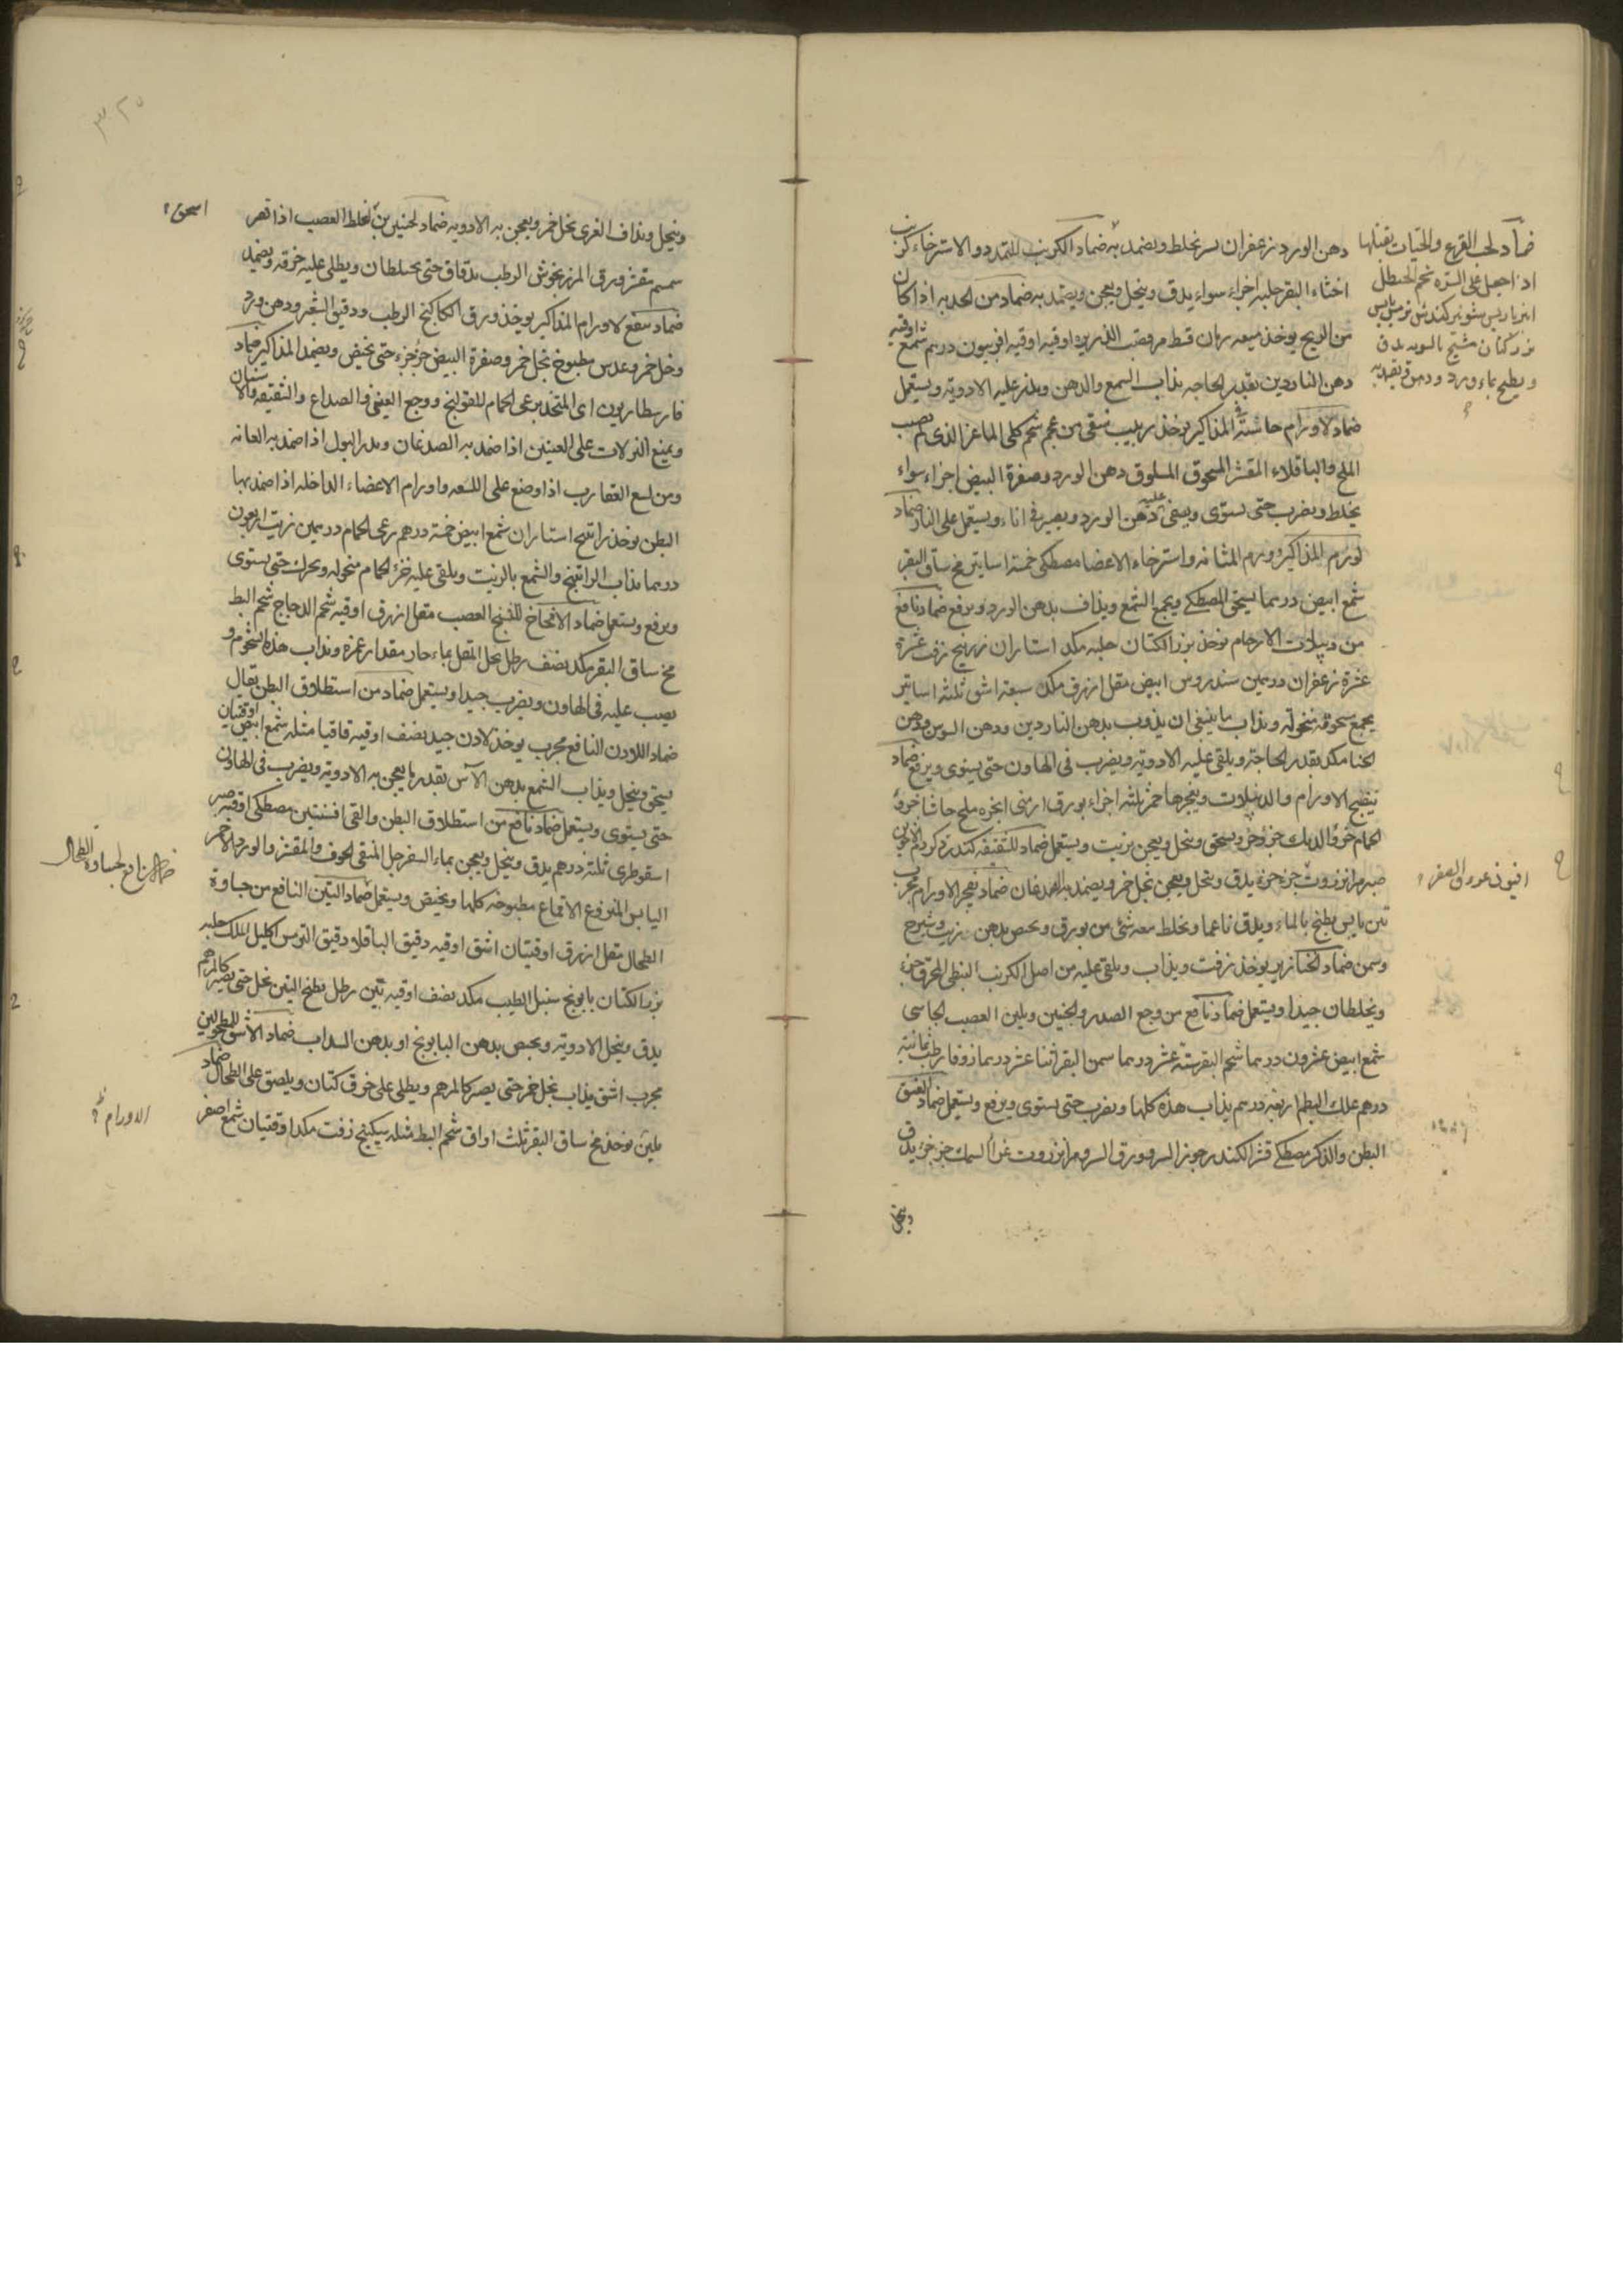 دهن الورد زعفران يخلط ويضمد به ضماد الكرنب للتمدد والاسترخاء كرنب
اخثاء البقر حلبه اجزاء سواء يدق وينخل ويعجن ويضمد به ضماد من الحدبه اذا كان
من الريح يوخذ ميعه رمان قسط مر قصب الذريره اوقيه اوقيه افربيون درهم شمع اوقيه
دهن الناردين بقدر الحاجه يذاب الشمع والدهن ويذر عليه الادوية ويستعمل
ضماد لاورام المذاكير يوخذ زبيب منقى من عجم شحم كلى الماعز الذى لم يصب
الملح والباقلاء المقشر المسحوق المسلوق دهن الورد وصفرة البيض اجزاء سواء
يخلط ويضرب حتى يستوى ويصفى عليه دهن الورد ويصير فى اناء ويستعمل على النار ضماد
لورم المذاكير وورم المثانه واسترخاء الاعضا مصطكى خمسة اساتير مخ ساق البقر
شمع ابيض درهما يسحق المصطكى ويجمع الشمع ويذاف بدهن الورد ويرفع ضماد نافع
من دبيلات الارحام يوخذ بزر الكتان حلبه مكد استاران زرنيخ زفت عشرة
عشرة زعفران درهمين سندروس ابيض مقل ازرق مكد سبعة اشق ثلثة اساتير
يجمع مسحوقه منخولة ويذاب ما ينبغى ان يذوب بدهن الناردين ودهن السوسن ودهن
الحنا مكد بقدر الحاجة ويلقى عليه الادوية ويضرب فى الهاون حتى يستوى ويرفع ضماد
ينضج الاورام والدبيلات ويفجرها خمر ثلثه اجزاء بورق ارمنى انجره ملح حاشا خرؤ
الحمام خرؤ الديك جزؤ جزؤ يسحق وينخل ويعجن بزيت ويستعمل ضماد للشقيقه كندر
صبر مر انزروت جزء جزء يدق وينخل ويعجن بخل خمر ويضمد به الصدغان ضماد يفجر الاورام مجرب
تين يابس يطبخ بالماء ويدق ناعما ويخلط معه شئ من بورق ويحبص بدهن زيت وشيرج
وسمن ضماد الخنازير يوخذ زفت ويذاب ويلقى عليه من اصل الكرنب النبطى المحرق جزء
ويخلطان جيدا ويستعمل ضماد نافع من وجع الصدر والجنين ويلين العصب الجاسى
شمع ابيض عشرون درهما شحم البقر ستة عشر درهما سمن البقر اثنا عشر درهما زوفا رطب ثمانية
درهم علك البطم اربعة درهم يذاب هذه كلها ويضرب حتى يستوى ويرفع ويستعمل ضماد لفتق
البطن والذكر مصطكى قشر الكندر جوز السرو ورق السرو مر انزروت غرا السمك جزؤ جزؤ يدق
وينخل
ضماد لحب القرع والحيات يقتلها
اذا جعل على السره شحم الحنظل
انبرباريس شونيز كندش ترمس يابس
بزر كتان شيح
ويطبخ بماء ورد
افيون عروق الصفر
وينخل ويذاف الغرى بخل خمر ويعجن به الادويه ضماد لحنين بن لغلظ العصب اذا قصر
اسحق
سمسم مقشر ورق المرزنجوش الرطب يدقاق حتى يختلطان ويطلى عليه خرقه ويضمد
ضماد سفع لاورام المذاكير يوخذ ورق الكاكنج الرطب ودقيق الشعير ودهن ورد
وخل خمر وعدس مطبوخ بخل خمر وصفرة البيض جزؤ جزؤ حتى يخبص ويضمد المذاكير ضماد
فارسطاريون اى المتخذ برعى الحمام للقولنج ووجع العين والصداع والشقيقه والاسنان
ويمنع النزلات على العينين اذا ضمد به الصدغان ويدر البول اذا ضمد به العانه
ومن لسع العقارب اذا وضع على اللسعه واورام الاعضاء الداخله اذا ضمد بها
البطن يوخذ راتينج استاران شمع ابيض خمسة درهم رعى الحمام درهمين زيت اربعون
درهما يذاب الراتينج والشمع بالزيت ويلقى عليه خرؤ الحمام منخوله ويحرك حتى يستوى
ويرفع ويستعمل ضماد الامخاخ لتشنج العصب مقل ازرق اوقيه شحم الدجاج شحم البط
مخ ساق البقر مكد نصف رطل يحل المقل بماء حار مقدار غمره ويذاب هذه الشحوم و
يصب عليه فى الهاون ويضرب جيدا ويستعمل ضماد من استطلاق البطن يقال
ضماد اللاون النافع مجرب يوخذ لادن جيد نصف اوقيه قاقيا مثله شمع ابيض اوقيتان
يسحق وينخل ويذاب الشمع بدهن الآس بقدر ما يعجن به الادوية ويضرب فى الهاون
حتى يستوى ويستعمل ضماد نافع من استطلاق البطن والقى افسنتين مصطكى اوقيه صبر
اسقوطرى ثلثة درهم يدق وينخل ويعجن بماء السفرجل المنقى الجوف والمقشر والورد الاحمر
اليابس المنزوع الاقماع مطبوخه كلها ويخبص ويستعمل ضماد التين النافع من جساوة
الطحال مقل ازرق اوقيتان اشق اوقيه دقيق الباقلا دقيق الترمس اكليل الملك حلبه
بزر الكتان بابونج سنبل الطيب مكد نصف اوقيه تين رطل يطبخ التين بخل حتى يصير كالمرهم
يدق وينخل الادوية ويحبص بدهن البابونج او بدهن السداب ضماد الاشق للطحولين
مجرب اشق يذاب بخل خمر حتى يصير كالمرهم ويطلى على خرق كتان ويلصق على الطحال ضماد
يلين يوخذ مخ ساق البقر ثلث اواق شحم البط مثله سكبينج زفت مكد اوقيتان شمع اصفر
لجساوة الطحال
الاورام